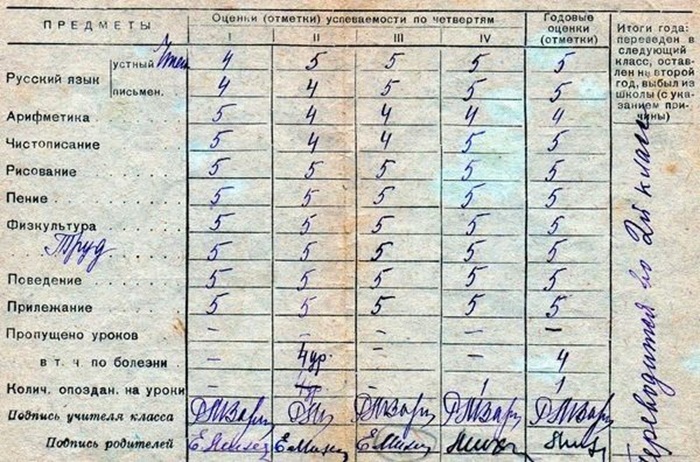 ПРЕДМЕТЫ
Оценки (отметки) успеваемости по четвертям
I II III IV
Годовые оценки (отметки)
Итоги года: переведен в следующий класс, оставлен на второй год, выбыл из школы (с указанием причины)
Русский язык
устный Чтен 4 5 5 5 5
письмен. 4 4 5 5 5
Арифметика 5 4 4 4 4
Чистописание 5 4 4 5 5
Рисование 5 5 5 5 5
Пение 5 5 5 5 5
Физкультура 5 5 5 5 5
Труд 5 5 5 5 5
Поведение 5 5 5 5 5
Прилежание 5 5 5 5 5
Пропущено уроков – – – –
в т. ч. по болезни – 4 ур. – – 4
Колич. опоздан. на уроки – – 1 1
Подпись учителя класса
Подпись родителей
Переводится во 2й класс